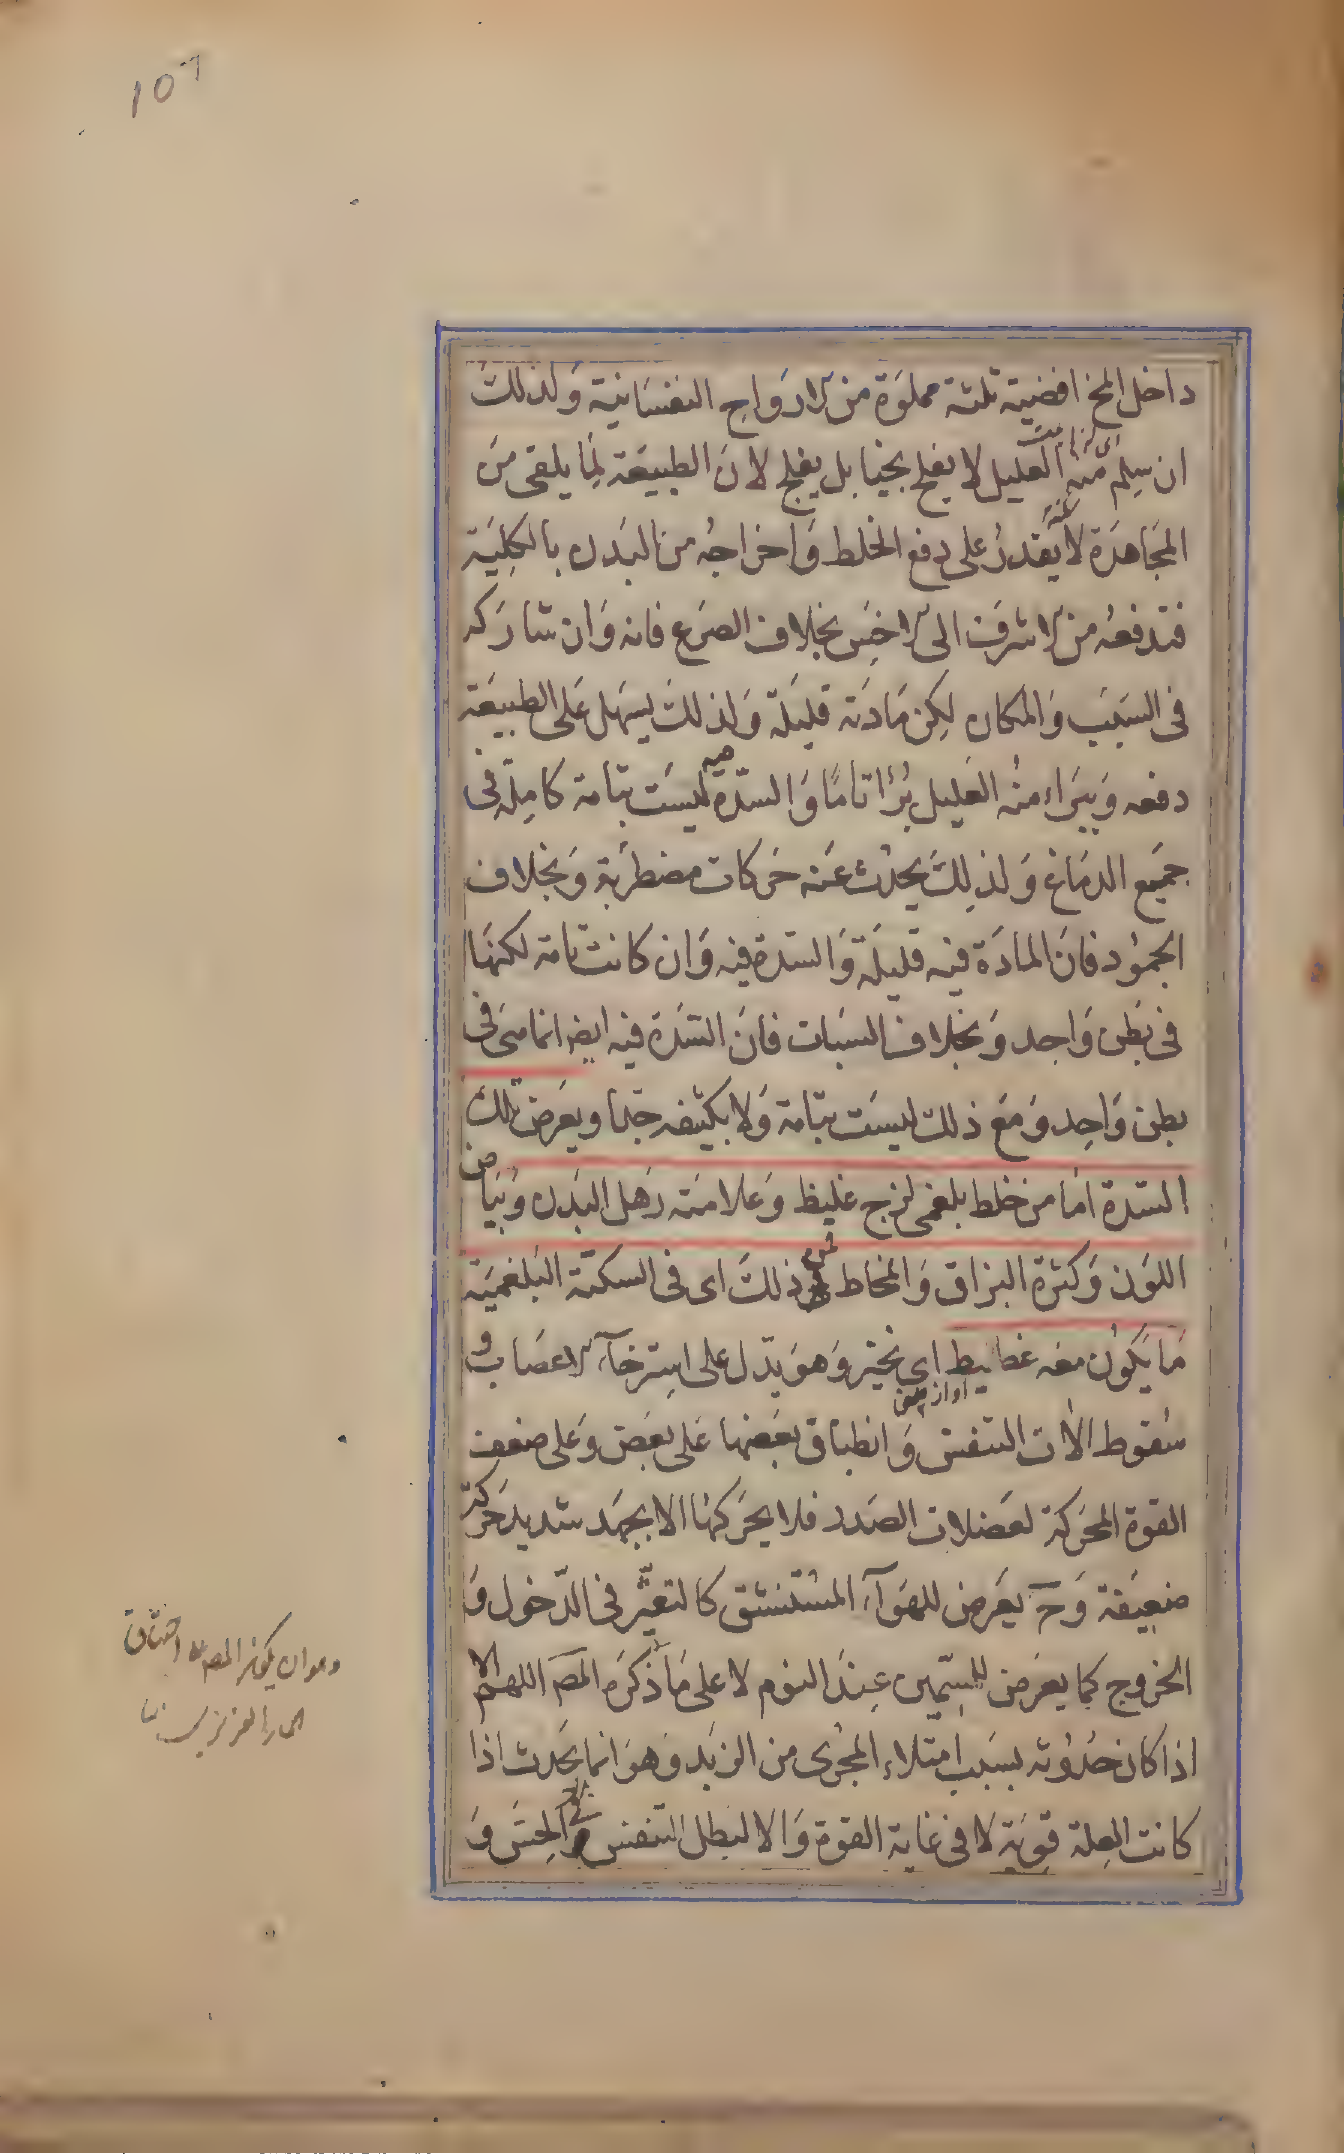 داخل المخ افضیة ثلثة مملوة من الارواح النفسانیة ولذلك
ان سلم منه العلیل لا یفلح بخیا بل یفلج لان الطبیعة لما یلقی من
المجاهدة لا یقدر علی دفع الخلط واخراجه من البدن بالکلیة
فتدفعه من الاشرف الی الاخس بخلاف الصرع فانه وان شارکه
فی السبب والمکان لکن مادته قلیلة ولذلك یسهل علی الطبیعة
دفعه ویبراء منه العلیل برؤا تاما والسدة فیه لیست بتامة کاملة فی
جمیع الدماغ ولذلك یحدث عنه حرکات مضطربة وبخلاف
الجمود فان المادة فیه قلیلة والسدة فیه وان کانت تامة لکنها
فی بطن واحد وبخلاف السبات فان السدة فیه ایضا انما هی فی
بطن واحد ومع ذلك لیست بتامة ولا بکثیفه جدا ویعرض تلك
السدة اما من خلط بلغمی لزج غلیظ وعلامته رهل البدن وبیاض
اللون وکثرة البزاق والمخاط فمن ذلك ای فی السکتة البلغمیة
ما یکون معه غطیط ای نخیر وهو یدل علی استرخآء الاعصاب و
سقوط الات التنفس وانطباق بعضها علی بعض وعلی ضعف
القوة المحرکة لعضلات الصدر فلا یحرکها الا بجهد شدید حرکة
ضعیفة وح یعرض للهوآء المستنشق کالتعثر فی الدخول و
الخروج کما یعرض للسمین عند النوم لا علی ما ذکره المص اللهم الا
اذا کان حدوثه بسبب امتلاء المجری من الزبد وهو انما یحدث اذا
کانت العلة قویة لا فی غایة القوة والا لبطل التنفس الحس و